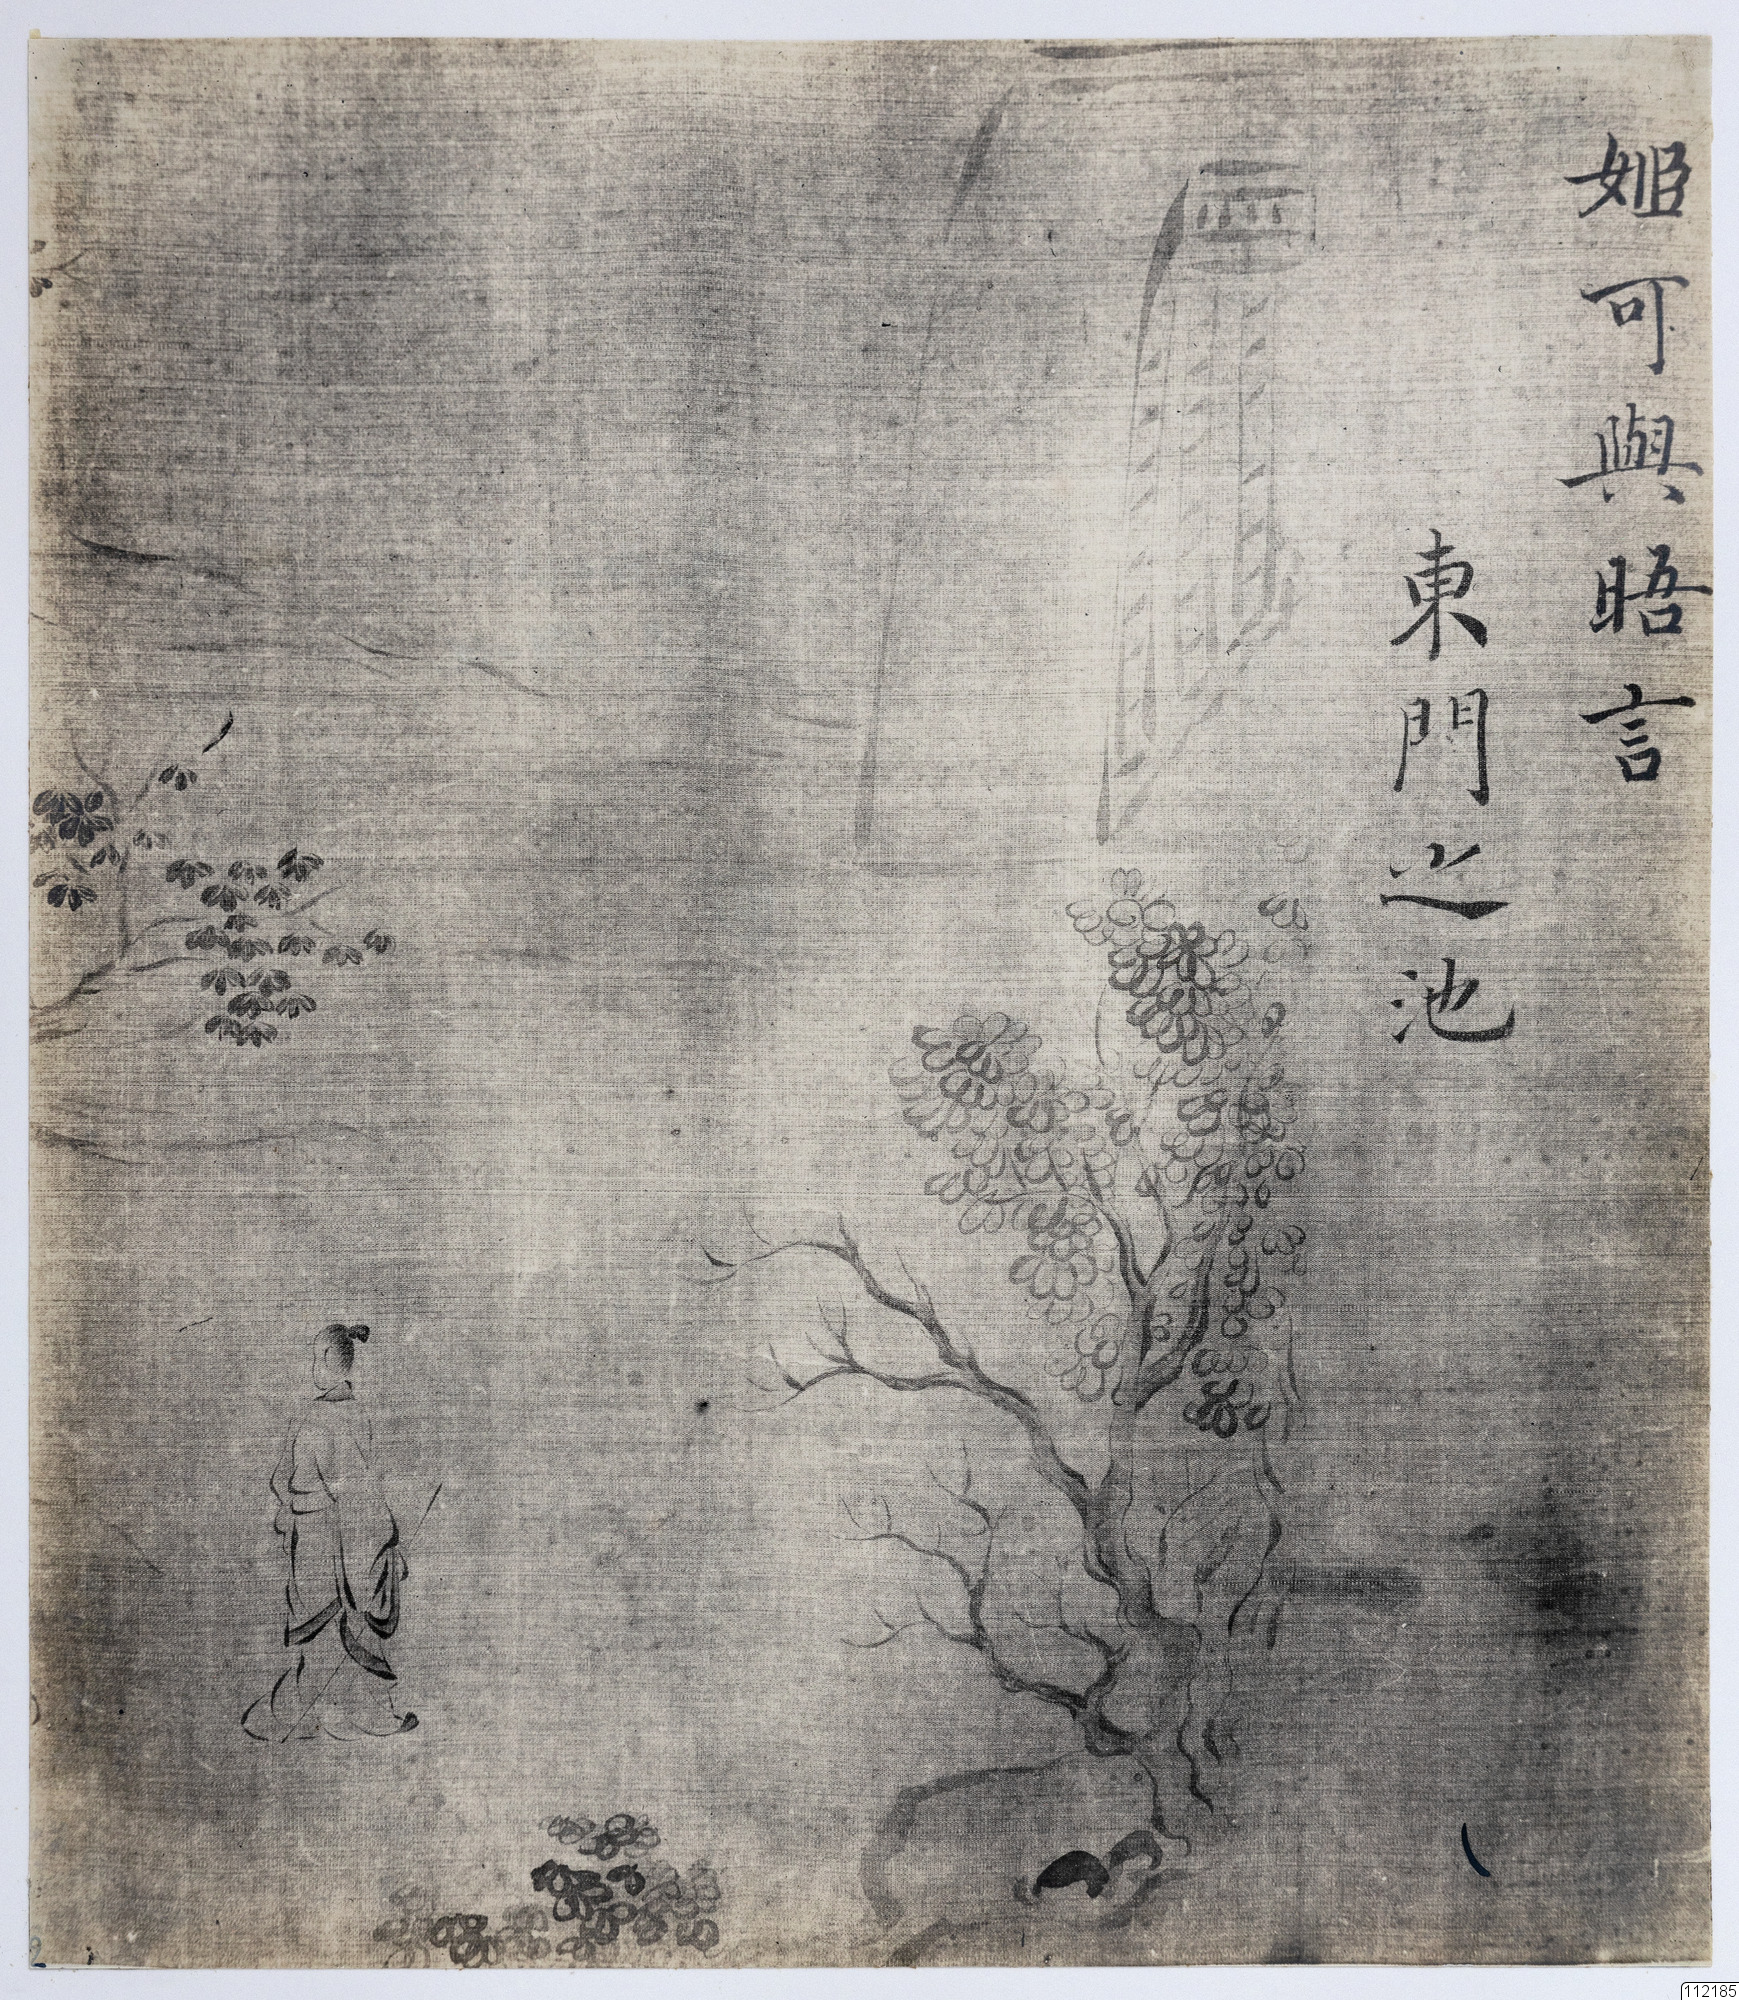 姬可與晤言
東門之池
2
112185